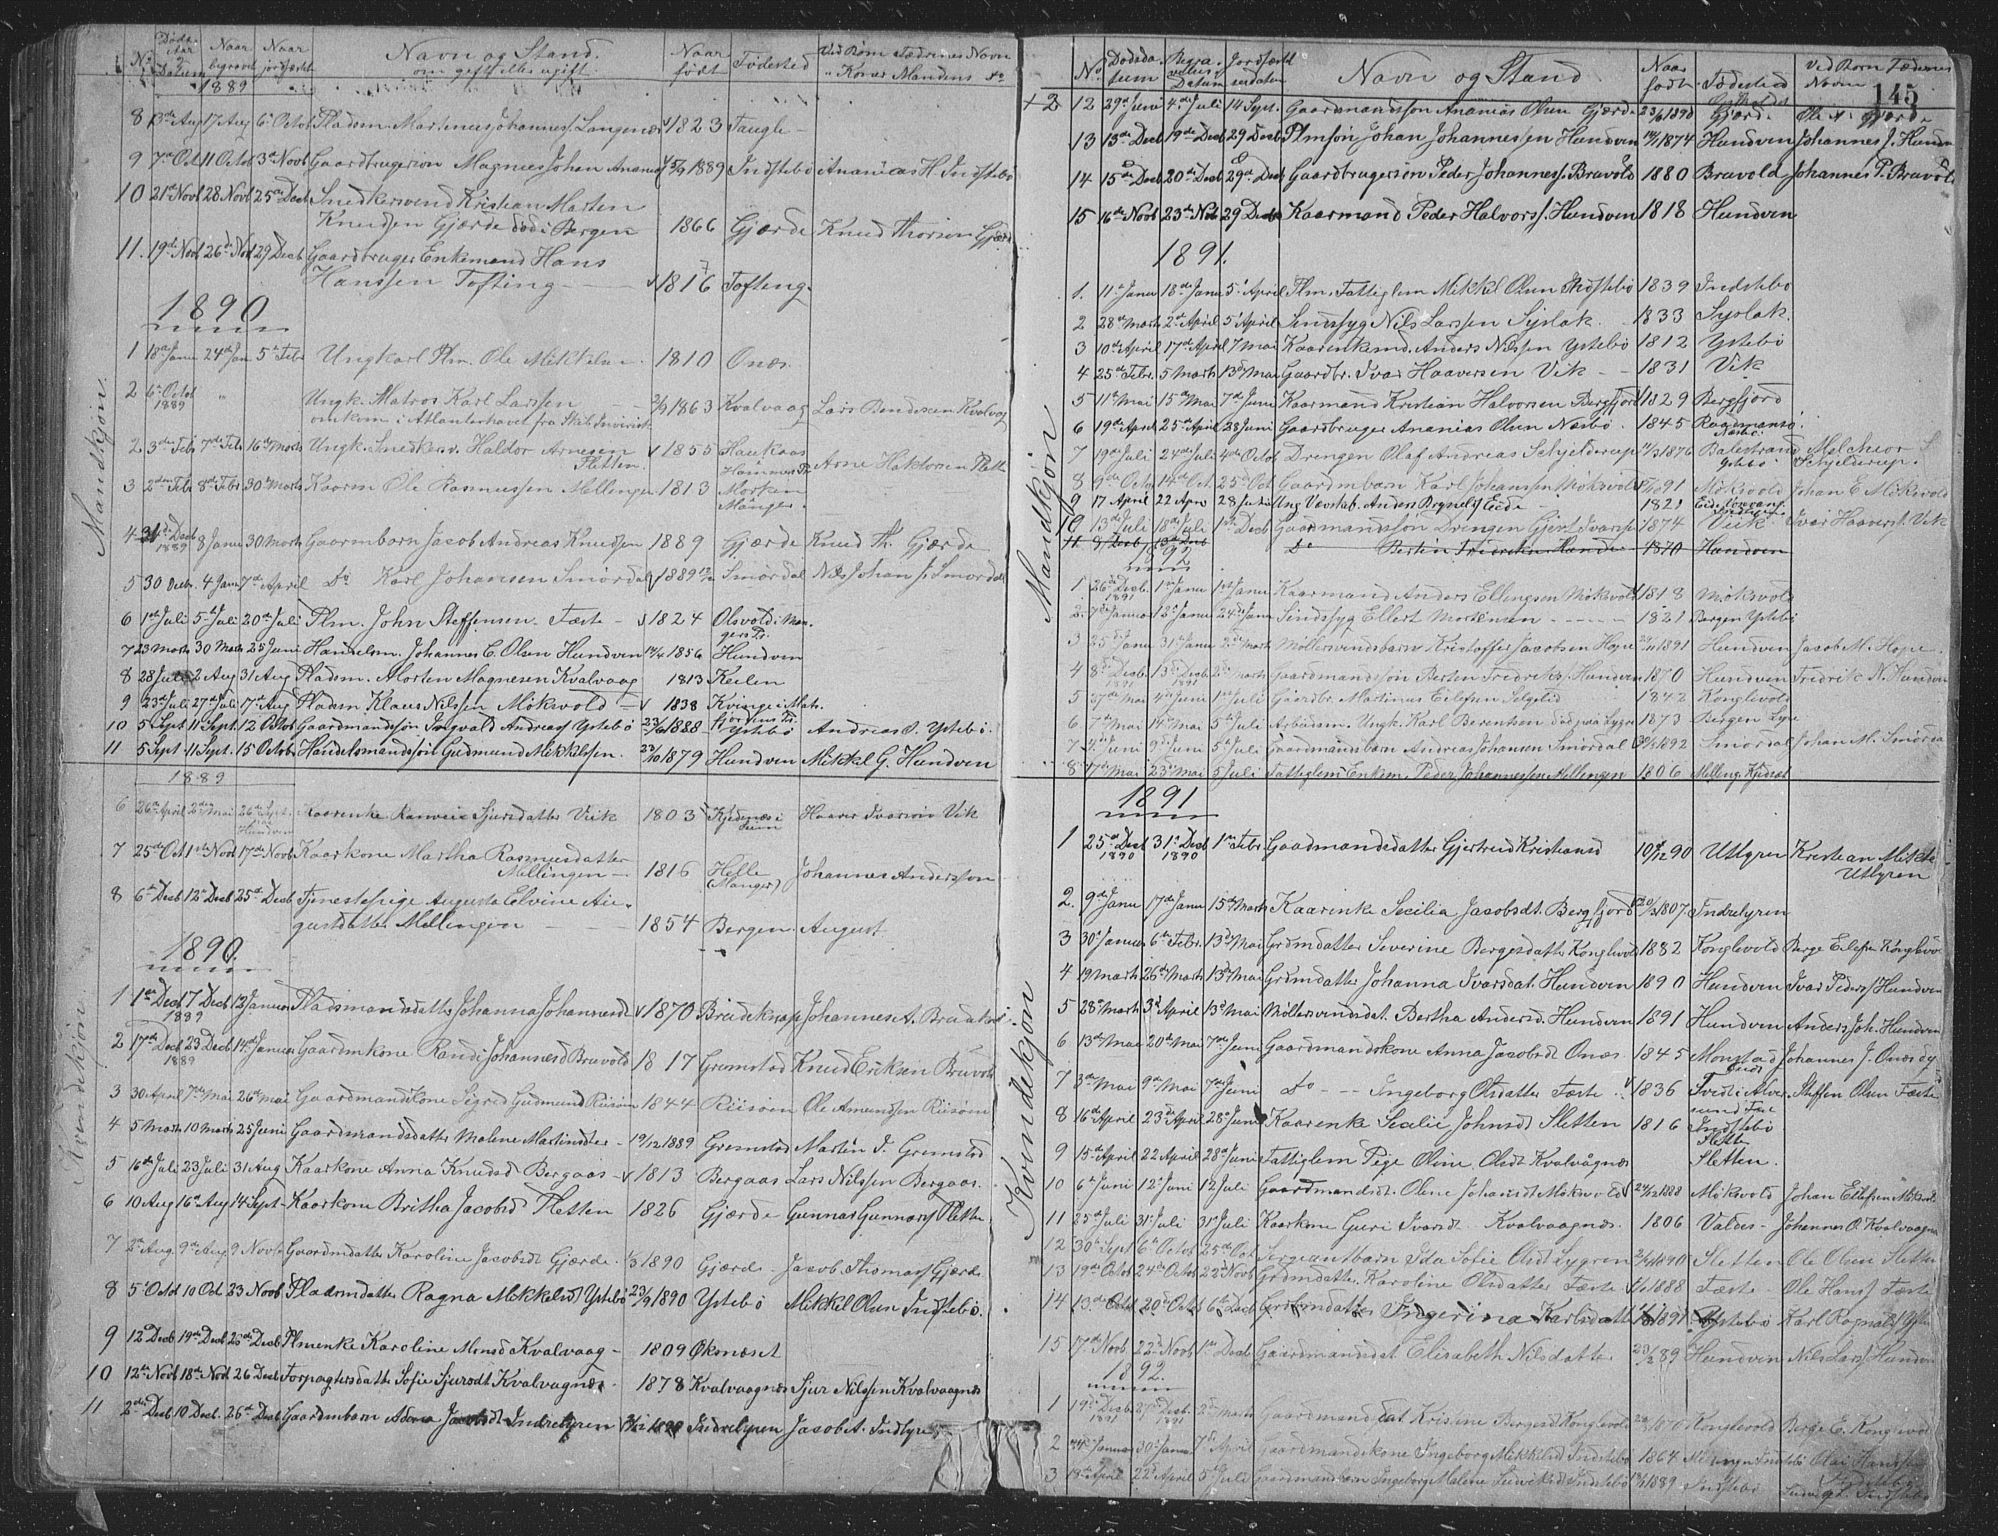 No Døds Aar & Datum Naar begravet Naar jordfæstet Navn og Stand. om gift eller ugift Naar født Fødested Ved Børn Fædrenes Navn
" Koner Mandens Do
1889
8 13de Aug 17 Aug 6te Octob Pladsm. Martinus Johannes. Langenæs 1823 Taugle
9 7de Oct 11 Octob 3de Novb Gaardbrugersøn Magnus Johan Ananias 1889 Indstebø Ananias H. Indstebø
10 21de Novb 28 Novb 25de Decb Snedkersvend Kristian Marten
Knudsen Gjærde død i Bergen 1866 Gjærde Knud Thorsen Gjærde
11. 19de Novb 26de Nov 29 Decb Gaardbruger Enkemand Hans
Hanssen Tofting 1816 Tofting
1890
Mandkjøn
1 18de Janu 24de Jan 5te Febr Ungkarl Plm. Ole Mikkelsen 1810 Onæs.
2 6te Octob 1889 " Ungk. Matros Karl Larssen
omkom i Atlanterhavet fra Skib 1863 Kvalvaag Lars Bendixen Kvalvaag
2 3de Febr 7de Febr 16de Marts Ungk. Snedkersv. Haldor Arnesen
Sletten 1855 Haukaas Hammer Pr. Arne Haktorsen Slette
3 2den Febr 8de Febr 30 Marts Kaarm Ole Rasmussen Mellingen 1813 Morken Manger
4 31de Decb 1889 8 Janu 30 Marts Gaarmbarn Jacob Andreas Knudsen 1889 Gjærde Knud Th. Gjærde
5 30 Decbr 4 Janu 7de April Do Karl Johansen Smørdal 1889 Smørdal Nils Johan J. Smørdal
6 1ste Juli 5te Juli 20de Juli Plm. John Steffensen Fæste 1824 Olsvold i Mangers Pr.
7 23 Marts 30 Marts 25 Juni Handelsm. Johannes C. Olsen Hundven 1856 Hundven
8 28 Juli 2 Aug 31 Aug Pladsm. Morten Magnesen Kvalvaag 1813 Keilen
9 23de Juli 27de Juli 17de Aug Pladsm Klaus Nilssen Möksvold 1838 Kvinge i Matsfjordens Pr.
10 5 Sept 11 Sept. 12 Octob Gaardmandssøn Ingvald Andreas Ystebø 23/6 1888 Ystebø Andreas O. Ystebø.
11 5 Sept 11 Sept. 15 Octob Handelsmandssøn Gudmund Mikkelsen. 22/10 1879 Hundven Mikkel G. Hundven
1889
6 26de April 2den Mai 26de Sept. Hundven Kaarenke Ranveie Sjursdatter Vik 1803 Kjednæs i Seim Haaver Ivarssøn Vik
7 25de Oct 1ste Novb 17de Novb Kaarkone Martha Rasmusdatter
Mellingen 1816 Helle (Manger) Johannes Anderssøn
8 6te Decb 12te Decb 25de Decb Tjenestepige Augusta Elvine Au-
gustdatter Mellingen 1854 Bergen August
1890.
Kvindekjøn.
1 1ste Decb 1889 7 Decb 12 Januar Pladsmandsdatter Johanna Johannesd 1870 Brudeknap Johannes A. Brudeknap
2 17de Decb 1889 23 Decb 14de Januar Gaardmkone Randi Johannesd Bruvold 1817 Grimstad Knud Eriksen Bruvold
3 30 April 7de Mai 26 Mai Gaardmandkone Sigrid Gudmund Riisøm 1844 Riisøm Ole Amundsen Riisøm
4 5 Marts 10 Marts 25 Juni Gaardsmandsdatter Malene Martinsdter 19/12 1889 Gremstad Martin J. Gremstad
5 16de Juli 23 Juli 31 Aug Kaarkone Anna Knudsd Bergaas 1813 Bergaas Lars Nilssen Bergaas.
6 10 Aug 16de Aug 14 Sept Kaarkone Britha Jacobsd Sletten 1826 Gjærde Gunnar Gunnars. Sletten
7 2de Aug. 9de Aug 9 Novb Gaardmdatter Karoline Jacobsd Gjærde. 1890 Gjærde Jacob Thomas. Gjærde
8 5te Octb 10 Oct. 23 Novb Pladsmdatter Ragna Mikkelsd Ystebø 23/9 1890 Ystebø Mikkel Olsen Indstebø.
9 12 Decb 19de Decb 26de Decb Plmenke Karoline Monsd Kvalvaag 1809 Øksnæset
10 12te Novb 18de Novb 26 Decb Forpagtersdatter Sofie Sjursdt Kvalvagnæs 1878 Kvalvaagnæs Sjur Nilssen Kvalvaagnæs
11 2den Decb 10 Decb. 26de Decb Gaardmbarn Anna Jacobsd Indrelyren 1890 Indrelyren Jacob A. Indlyre
No Dødsdatum Begravelses Datum Jordfæstelsesdatum Navn og Stand Naar født Fødested Ved Børn Fædrenes Navn
145
+ 2 12 29de Juni 4de Juli 14 Sept. Gaardmandssøn Ananias Olsen Gjærde 23/6 1890 Gjærde Ole N. Gjærde
13 13de Decb 19de Decb 29 Decb Plmsøn Johan Johannessen Hundven 1874 Hundven Johannes J. Hundven
14 15de Decb 20de Decb 29de Decb Gaardbrugersøn Peder Johannes. Bruvold 1880 Bruvold Johannes P. Bruvold
15 16de Novb 23de Nob 29 Decb Kaarmand Peder Halvors. Hundven 1818 Hundven
1891.
Mandkjøn
1. 11te Janu 18de Janu 5te April Plm. Fattiglem Mikkel Olsen Indstebø 1839 Indstebø
2 28de Marts 2den April 5te April Sindssyg Nils Larssen Syslak. 1833 Syslak.
3 10de April 17de April 7 Mai Kaarenkemd. Anders Nilssen Ystebø 1812 Ystebø
4 25de Febr. 5 Marts 13de Mai Gaardbr. Ivar Haaversen Vik 1831 Vik
5 11te Mai 15de Mai 7de Juni Kaarmand Kristian Halvorsen Bergfjord 1829 Bergfjord
6 19de April 25de April 28 Juni Gaardbruger Ananias Olsen Næsbø. 1845 Næsbø
7 19de Juli 24de Juli 4de Octob Drengen Olaf Andreas Schjelderup 1876 Balestrand Ystebø Melchior S. Schjelderup.
8 9de Octo 14de Oct. 25de Oct Gaardmbarn Karl Johanssen Møksvold 1891 Møksvold Johan E. Møksvold
9 17 April 22 Apri 28 Juni Ung Vanskab. Anders Brynelsd Eide 1821 Eide
10 13de Juli 18de Juli 1ste Decb Gaardmandssøn Drengen Gjert Ivars. 1874 Viik Ivar Haavers. Vik
11 8 Decb 13de Decb Do Bertin Fredriksen Hundven 1870 Hundven
1892
1 26de Decb. 1891 1ste Janu 1ste Janu Kaarmand Anders Ellingsen Møksvold 1818 Møksvold
2. 7de Januar 12te Janu 24de Janu Sindssyg Ellert Mortensen 1821 Bergen Ystebø
3 25de Janu 31te Janu 2den Marts Møllersvendsbarn Kristoffer Jacobsen Hope 1891 Hundven Jacob M. Hope.
4 8de Decb 1891 13de Decb 1891 2den Marts Gaardmandssøn Bertin Fredriks. Hundven 1870 Hundven Fredrik N. Hundven
5 27de Mai 4de Juni 1ste Juli Gaardbr. Martinus Eilefsen Solgtid 1842 Konglevold
6 7de Mai 14de Mai 5te Juli Arbeidsm. Ungk. Karl Berentsen død paa Lygre 1873 Bergen Lyre
7 4de Juni 9de Juni 5te Juli Gaardmandsbarn Andreas Johansen Smørdal 1892 Smørdal Johan M. Smørdal
8 17de Mai 23de Mai 5 Juli Fattiglem Enkem. Peder Johannessen Mellingen 1806 Melling
1891
Kvindekjøn
1 25de Decb 1890 31te Decb 1890 1ste Febr. Gaardmandsdatter Gjertrud Kristiansd 10/12 90 Utlyren Kristian Mikkels Utlyren
2. 9de Janu 17de Janu 15de Marts Kaarenke Secilia Jacobsdt. Bergfjord 1807 Indrelyren
3 30te Januar 6te Febr. 13de Mai Grdmdatter Severine Bergesdatter Konglevold 1882 Konglevold Berge Eilefsn Konglevold
4 19 Marts 26de Marts 13de Mai Grdmdatter Johanna Ivarsdat. Hundven 1890 Hundven Ivar Peders. Hundven
5 28de Marts 3de April 13de Mai Møllersvendsdat. Bertha Andersd. Hundven 1891 Hundven Anders Joh. Hundven
6 13de Mai 20de Mai 7de Juni Gaardmandskone Anna Jacobsdt Onæs 1845 Monstad Johannes J. Onæs
7 3de Mai 9de Mai 7de Juni Do Ingeborg Olsdatter Fæste 1836 Steffen Olsen Fæste
8 16de April 23de April 28de Juni Kaarenke Secilie Johnsdt Sletten 1816 Indstebø Slett
9 15de April 22 April 28de Juni Fattiglem Pige Oline Olsdt Kvalvågnæs Sletten.
10 6te Juni 12te Juni 12 Juli Gaardmandsdt. Oline Johansdt Møksvold 1888 Møksvold Johan Eilefsen Møksvold
11 25de Juli 31te Juli 31te Juli Kaarkone Guri Ivarsdt Kvalvaagnæs 1806 Valdes Johannes O. Kvalvaagnæs
12 30te Sept 6te Octob 25de Oct Sergeantbarn Ida Sofie Olsdt Lygren 1890 Sletten Ole Olsen Sletten
13 19de Octob 24de Octob 22de Novb Grdmdatter Karoline Olsdatter Fæste 1888 Fæste Ole Hans. Fæste
14 13de Octob 20de Octob 6te Decb Grdmdatter Ingerina Karlsdatter 1891 Ystebø Karl Ragnald Ystebø
15 17de Novb 22de Novb 1ste Decb Gaardmandsdat Elisabeth Nilsdatter 23/2 89 Hundven Nils Lars. Hundven
1892.
1 19de Decb. 1891 27de Decb. 1891 2den Marts Gaardmandsdat Kristine Bergesd Konglevold 1876 Konglevold Berge E. Konglevold
2 Januar 30te Janu 7de April Gaardmandskone Ingeborg Mikkelsd Indstebø 1864 Indstebø Olai Hanssen Indstebø
3 18de April 22de April 5te Juli Gaardmandbarn Ingeborg Malene Ludviksd Indstebø 1889 Indstebø Ludvig L. Indstebø